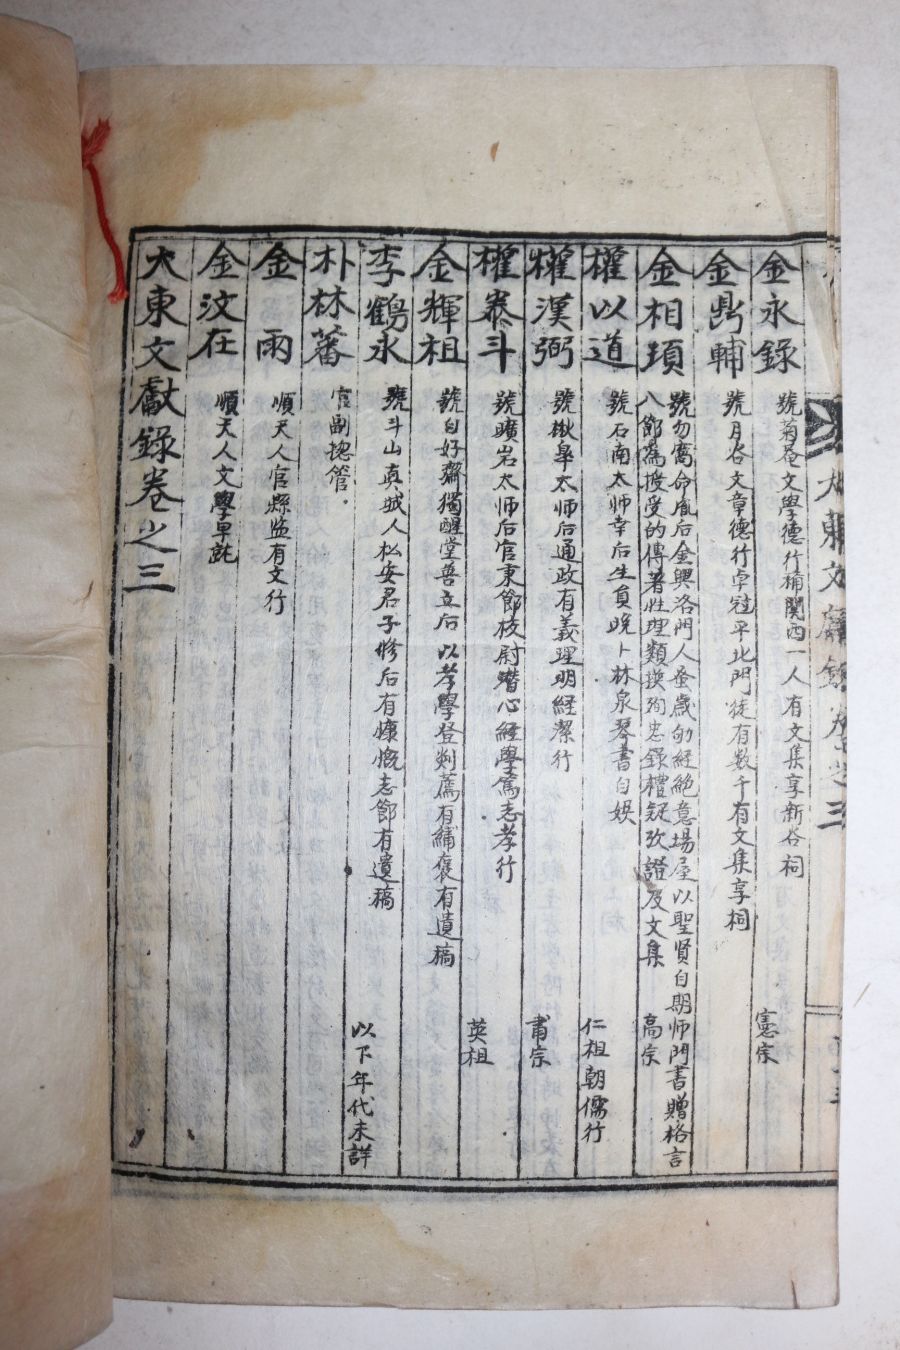 金永錄 號菊菴文學德行稱關西一人有文集享新谷祠 憲宗
金鼎輔 號月谷文章德行卓冠平北門徒有数千有文集享祠
金相頊 號勿窩命胤后金興洛門人蚤歲劬經絶意場屋以聖賢自期師門書贈格言
八節為授受的傳著性理類撰殉忠錄禮疑攷證及文集 高宗
權以道 號石南太师幸后生員晚卜林泉琴書自娛 仁祖朝儒行
權漢弼 號楸皐太师后通政有義理明經潔行 肅宗
權泰斗 號曠岩太师后官東部校尉潛心經學篤志孝行 英祖
金輝祖 號自好齋獨醒堂善立后以孝學登剡薦有繡褒有遺稿
李鶴永 號斗山真城人松安君子脩后有慷慨志節有遺稿 以下年代未詳
朴林蕃 官副摠管
金雨 順天人官縣監有文行
金汶在 順天人文學早詑
大東文獻錄卷之三
大東文獻錄 卷之三